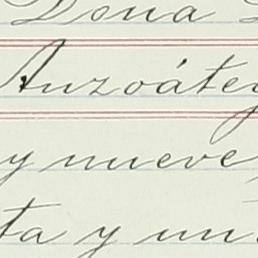 Dona
Anzoáteg
y nueve
ta y un